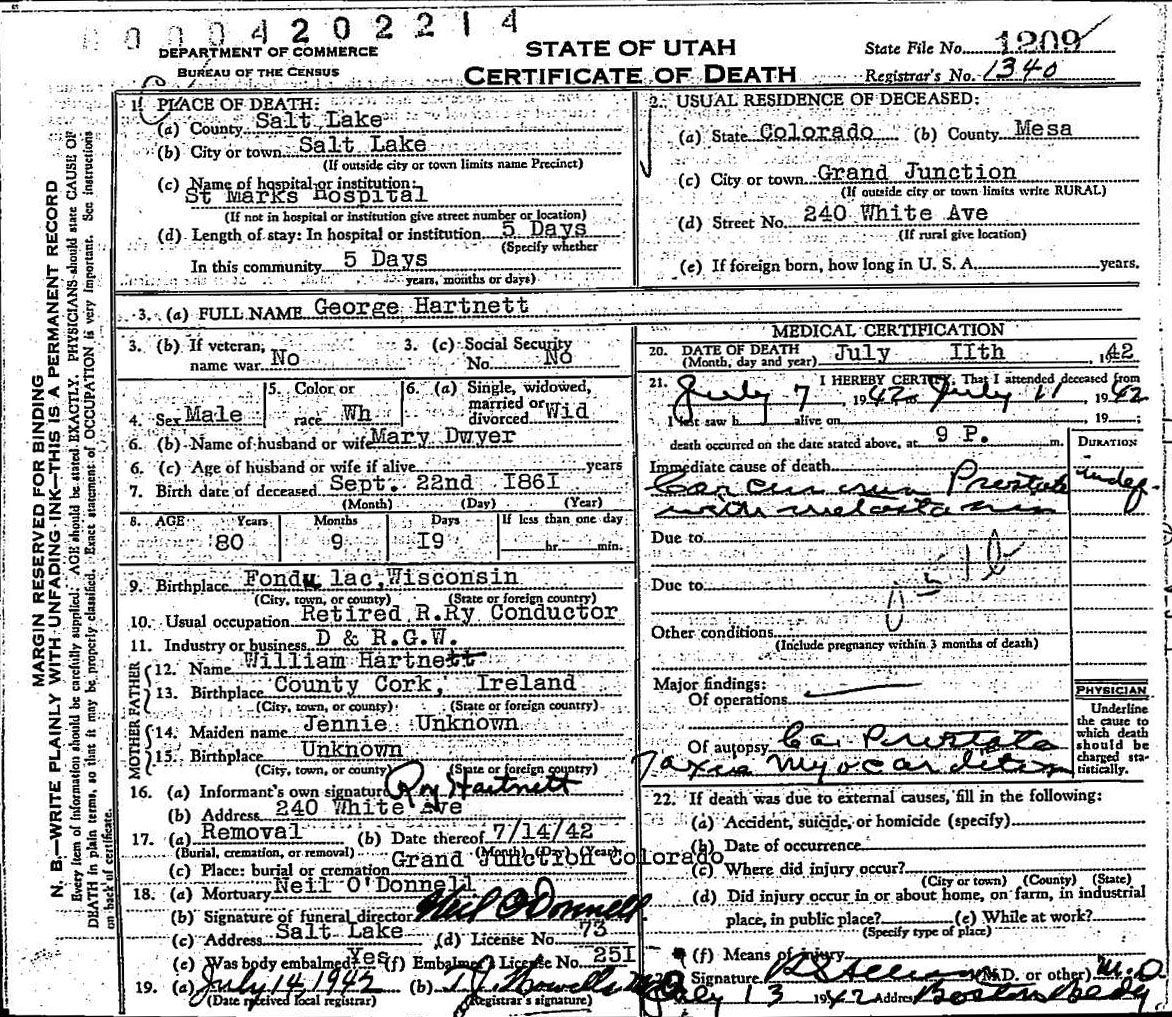 0004202214
DEPARTMENT OF COMMERCE
BUREAU OF THE CENSUS
STATE OF UTAH
CERTIFICATE OF DEATH
State File No. 1209
Registrar's No. 1340
MARGIN RESERVED FOR BINDING
N. B.—WRITE PLAINLY WITH UNFADING INK—THIS IS A PERMANENT RECORD
Every item of information should be carefully supplied. AGE should be stated EXACTLY. PHYSICIANS should state CAUSE OF
DEATH in plain terms, so that it may be properly classified. Exact statement of OCCUPATION is very important. See instructions
on back of certificate.
1. PLACE OF DEATH:
(a) County Salt Lake
(b) City or town Salt Lake
(If outside city or town limits name Precinct)
(c) Name of hospital or institution:
St Marks Hospital
(If not in hospital or institution give street number or location)
(d) Length of stay: In hospital or institution 5 Days
(Specify whether
In this community 5 Days
years, months or days)
2. USUAL RESIDENCE OF DECEASED:
(a) State Colorado (b) County Mesa
(c) City or town Grand Junction
(If outside city or town limits write RURAL)
(d) Street No. 240 White Ave
(If rural give location)
(e) If foreign born, how long in U. S. A. years.
3. (a) FULL NAME George Hartnett
3. (b) If veteran, name war No
3. (c) Social Security No. No
4. Sex Male
5. Color or race Wh
6. (a) Single, widowed, married or divorced Wid
6. (b) Name of husband or wife Mary Dwyer
6. (c) Age of husband or wife if alive years
7. Birth date of deceased Sept. 22nd I86I
(Month) (Day) (Year)
8. AGE Years Months Days If less than one day
80 9 I9 hr. min.
9. Birthplace Fondu lac, Wisconsin
(City, town, or county) (State or foreign country)
10. Usual occupation Retired R.Ry Conductor
11. Industry or business D & R.G.W.
FATHER
12. Name William Hartnett
13. Birthplace County Cork, Ireland
(City, town, or county) (State or foreign country)
MOTHER
14. Maiden name Jennie Unknown
15. Birthplace Unknown
(City, town, or county) (State or foreign country)
16. (a) Informant's own signature Roy Hartnett
(b) Address 240 White Ave
17. (a) Removal (b) Date thereof 7/14/42
(Burial, cremation, or removal) (Month) (Day) (Year)
(c) Place: burial or cremation Grand Junction Colorado
18. (a) Mortuary Neil O'Donnell
(b) Signature of funeral director Neil O'Donnell
(c) Address Salt Lake (d) License No. 73
(e) Was body embalmed Yes (f) Embalmer's License No. 25I
19. (a) July 14, 1942 (b) T.J. Howells M.D.
(Date received local registrar) (Registrar's signature)
MEDICAL CERTIFICATION
20. DATE OF DEATH July IIth, 1942
(Month, day and year)
21. I HEREBY CERTIFY, That I attended deceased from
July 7, 1942 to July 11, 1942
I last saw h alive on , 19 ;
death occurred on the date stated above, at 9 P. m.
DURATION
Immediate cause of death
Carcinoma Prostate indef.
with metastasis
Due to
Due to
Other conditions
(Include pregnancy within 3 months of death)
Major findings:
Of operations
Of autopsy Ca. Prostate
Toxic Myocarditis
PHYSICIAN
Underline
the cause to
which death
should be
charged sta-
tistically.
22. If death was due to external causes, fill in the following:
(a) Accident, suicide, or homicide (specify)
(b) Date of occurrence
(c) Where did injury occur?
(City or town) (County) (State)
(d) Did injury occur in or about home, on farm, in industrial
place, in public place? (e) While at work?
(Specify type of place)
(f) Means of injury
Signature (M.D. or other) M.D.
July 13 1942 Address Boston Bldg